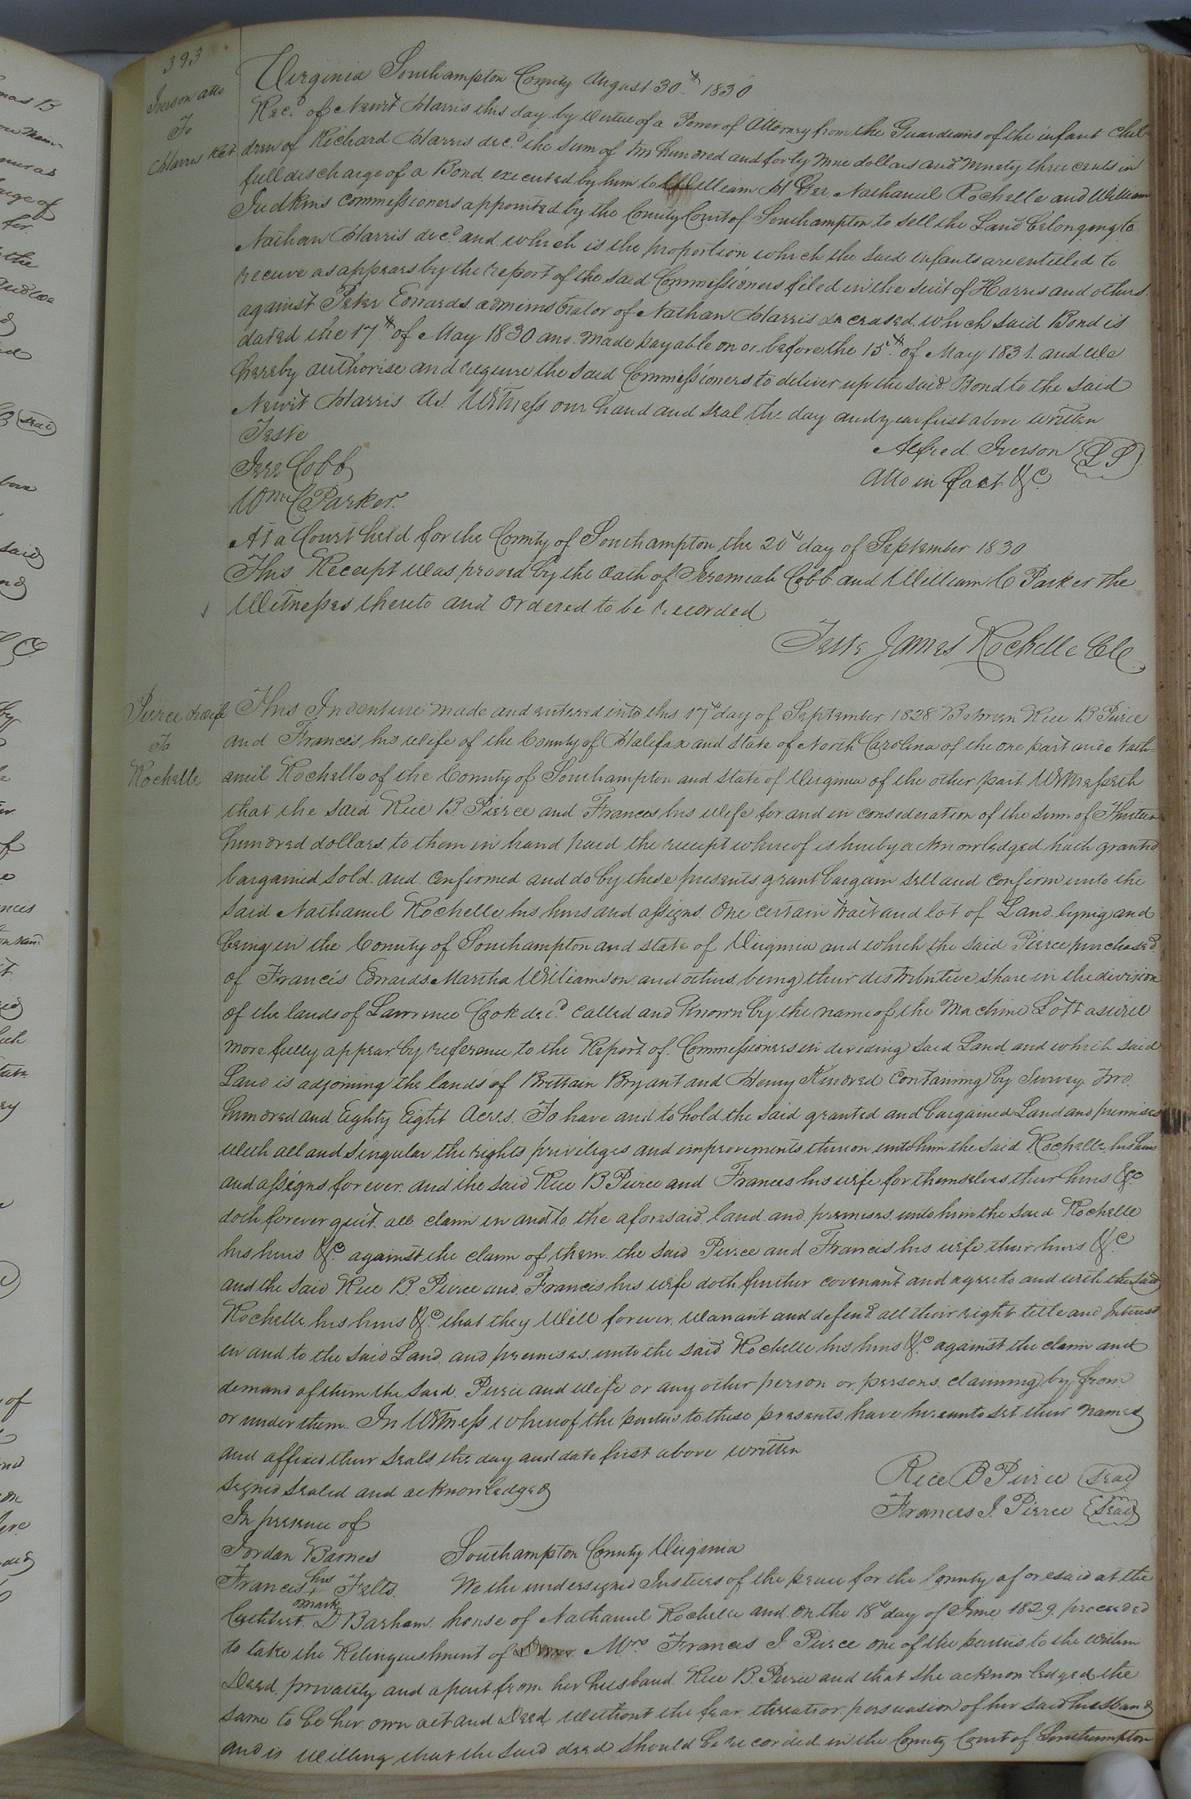 393
Iverson atto
To
Harris Rect
Virginia Southampton County August 30th 1830
Recd. of Newit Harris this day by virtue of a Power of Attorney from the Guardians of the infant chil-
dren of Richard Harris decd. the sum of two hundred and forty nine dollars and ninety three cents in
full discharge of a Bond executed by him to William H Nathaniel Rochelle and William
Judkins commissioners appointed by the County Court of Southampton to sell the Land belonging to
Nathan Harris decd. and which is the proportion which the said infants are entitled to
receive as appears by the report of the said Commissioners filed in the suit of Harris and others
against Peter Edwards administrator of Nathan Harris deceased which said Bond is
dated the 17th of May 1830 and made payable on or before the 15th of May 1831. and We
hereby authorise and require the said Commissioners to deliver up the said Bond to the said
Newit Harris As Witness our hand and seal the day and year first above written
Teste
Alfred Iverson LS
Jere Cobb
Atto in fact &C
Wm C Parker
At a Court held for the County of Southampton the 20th day of September 1830
This Receipt was proved by the oath of Jeremiah Cobb and William C Parker the
Witnesses thereto and ordered to be recorded
Teste James Rochelle Clc
Pierce & wife
To
Rochelle
This Indenture made and entered into this 17th day of September 1828 Between Rice B Pierce
and Francis his wife of the County of Halifax and State of North Carolina of the one part and Nath-
aniel Rochelle of the County of Southampton and State of Virginia of the other part Witnesseth
that the said Rice B. Pierce and Frances his wife for and in consideration of the sum of Thirteen
hundred dollars to them in hand paid the receipt whereof is hereby acknowledged hath granted
bargained sold and confirmed and do by these presents grant bargain sell and confirm unto the
said Nathaniel Rochelle his heirs and assigns One certain tract and lot of Land lying and
being in the County of Southampton and state of Virginia and which the said Pierce purchased
of Francis Edwards Martha Williamson and others being their distributive share in the division
of the lands of Lawrence Cook decd. called and Known by the name of the Machine Lott as will
more fully appear by reference to the Report of Commissioners in dividing said Land and which said
Land is adjoining the lands of Brittain Bryant and Henry Kindred Containing by Survey Two
hundred and Eighty Eight Acres. To have and to hold the said granted and bargained Land and premises
with all and singular the rights privileges and improvements thereon unto him the said Rochelle his heirs
and assigns forever. and the said Rice B Pierce and Frances his wife for themselves their heirs &c
doth forever quit all claim in and to the aforesaid land and premises unto him the said Rochelle
his heirs &c against the claim of them the said Pierce and Francis his wife their heirs &c
and the said Rice B. Pierce and Francis his wife doth further covenant and agree to and with the said
Rochelle his heirs &c that they will forever warrant and defend all their right title and Interest
in and to the said Land and premises unto the said Rochelle his heirs &c against the claim and
demand of them the said Pierce and wife or any other person or persons claiming by from
or under them. In Witness whereof the parties to these presents have hereunto set their names
and affixed their seals the day and date first above written
signed sealed and acknowledged
Rice B Pierce Seal
In presence of
Frances J. Pierce Seal
Jordan Barnes
Francis his mark Felts
Cuthbert D Barham
Southampton County Virginia
We the undersigned Justices of the peace for the County aforesaid at the
house of Nathaniel Rochelle and on the 18th day of June 1829 proceeded
to take the Relinquishment of Dower Mrs Frances J. Pierce one of the parties to the within
Deed privately and apart from her husband Rice B. Pierce and that she acknowledged the
same to be her own act and Deed without the fear threats or persuasion of her said husband
and is willing that the said deed should be recorded in the County Court of Southampton